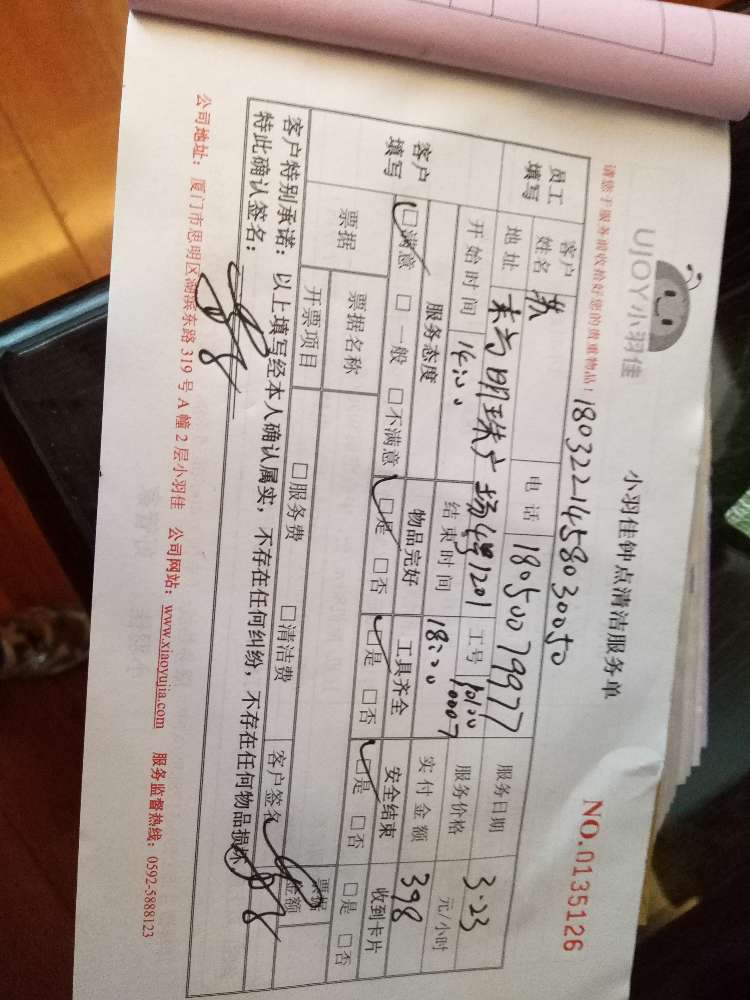 UJOY小羽佳
小羽佳钟点清洁服务单
NO.0135126
请您于服务前收拾好您的贵重物品！
1803221458030050
员工填写 客户姓名 电话 18050079977 服务日期 3.23
地址 东方明珠广场4号1201 工号 服务价格 元/小时
开始时间 14:00 结束时间 18:00 实付金额 398
客户填写 服务态度 物品完好 工具齐全 安全结束 收到卡片
□满意 □一般 □不满意 □是 □否 □是 □否 □是 □否 □是 □否
票据 票据名称 □服务费 □清洁费 票据金额
开票项目 客户签名
客户特别承诺：以上填写经本人确认属实，不存在任何纠纷，不存在任何物品损坏
特此确认签名：
公司地址：厦门市思明区湖滨东路319号A幢2层小羽佳 公司网站：www.xiaoyujia.com 服务监督热线：0592-5888123